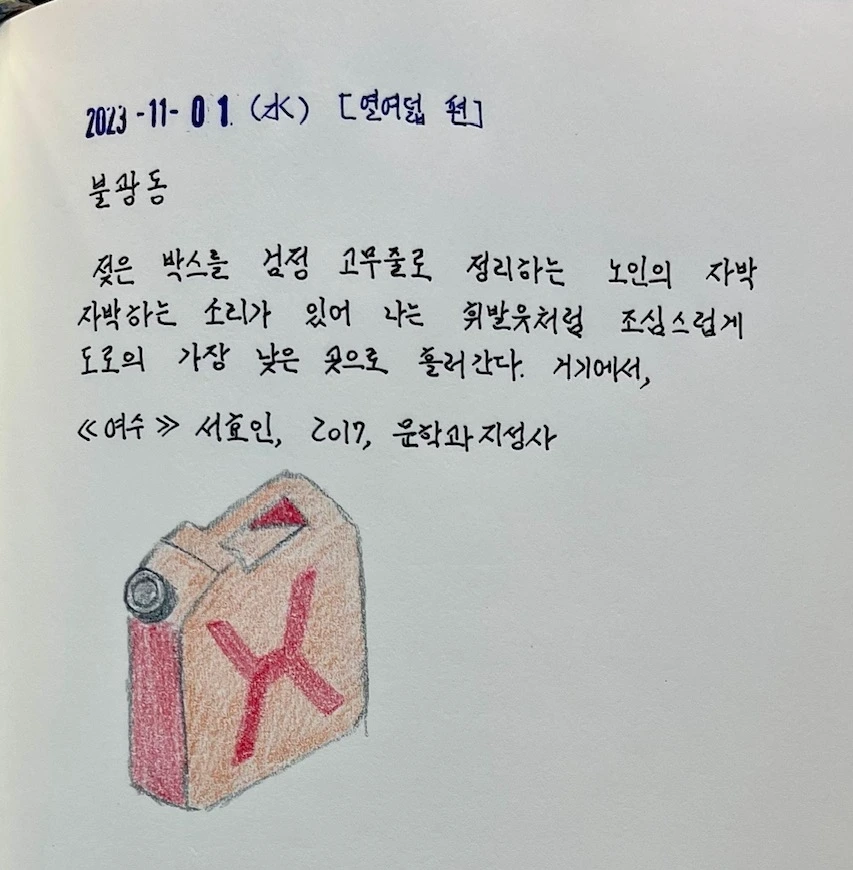 2023-11-01 (水) [열여덟 편]
불광동
젖은 박스를 검정 고무줄로 정리하는 노인의 자박
자박하는 소리가 있어 나는 휘발윳처럼 조심스럽게
도로의 가장 낮은 곳으로 흘러간다. 거기에서,
≪여수≫ 서효인, 2017, 문학과지성사